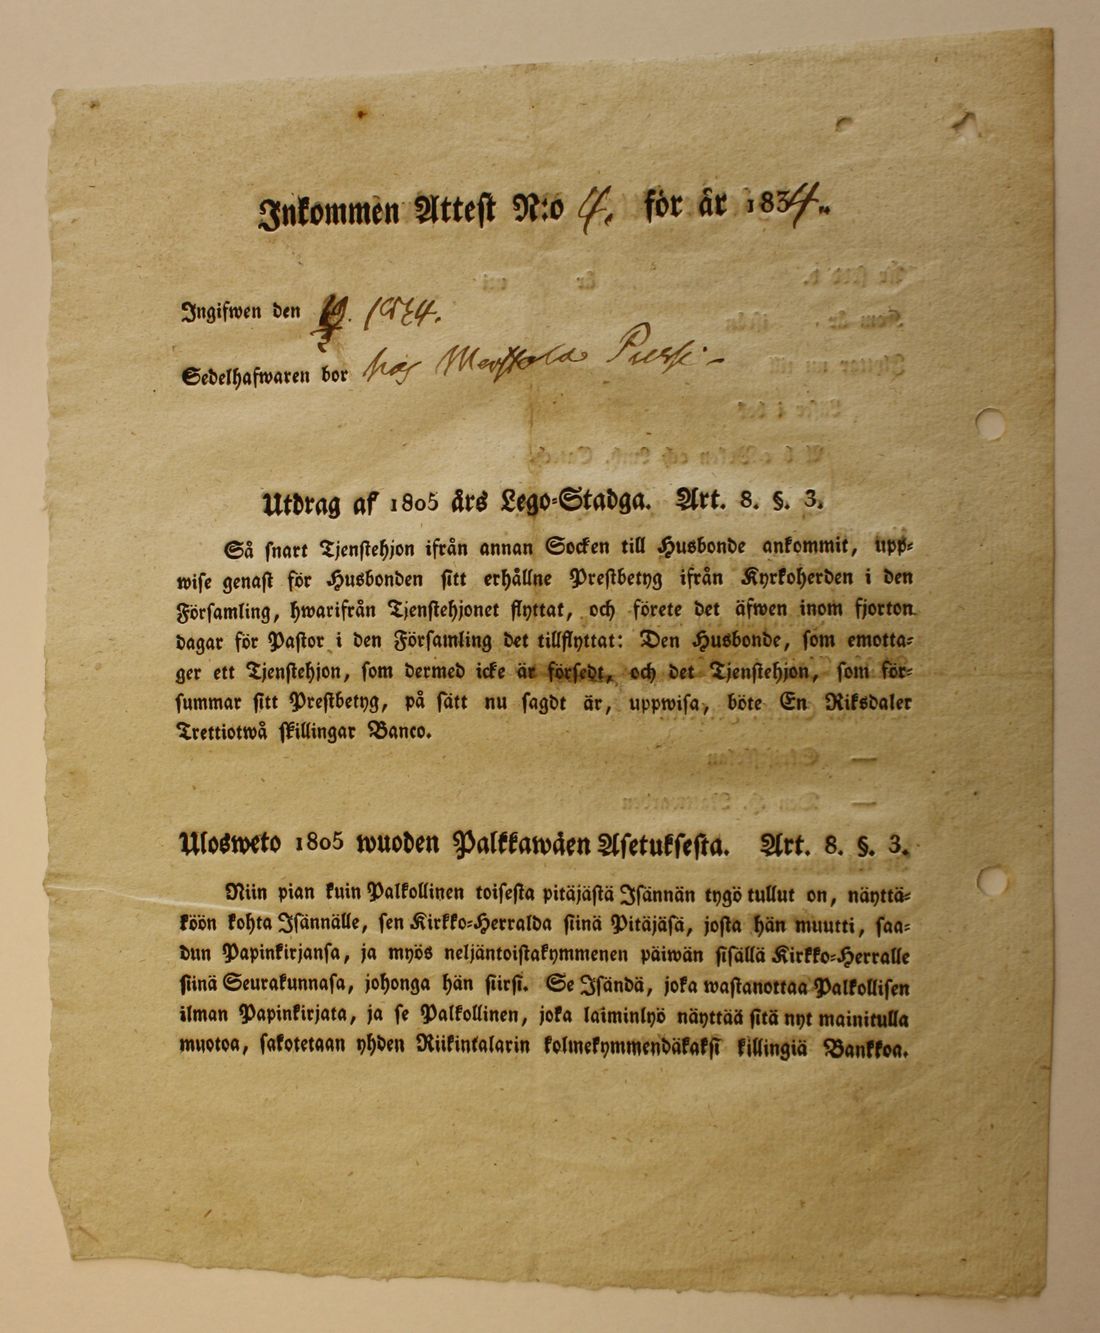 Inkommen Attest N:o 4. för år 1834.
Ingifwen den 19. 1834.
Sedelhafwaren bor hos
Utdrag af 1805 års Lego-Stadga. Art. 8. §. 3.
Så snart Tjenstehjon ifrån annan Socken till Husbonde ankommit, upp-
wise genast för Husbonden sitt erhållne Prestbetyg ifrån Kyrkoherden i den
Församling, hwarifrån Tjenstehjonet flyttat, och förete det äfwen inom fjorton
dagar för Pastor i den Församling det tillflyttat: Den Husbonde, som emotta-
ger ett Tjenstehjon, som dermed icke är försedt, och det Tjenstehjon, som för-
summar sitt Prestbetyg, på sätt nu sagdt är, uppwisa, böte En Riksdaler
Trettiotwå skillingar Banco.
Ulosweto 1805 wuoden Palkkawäen Asetuksesta. Art. 8. §. 3.
Niin pian kuin Palkollinen toisesta pitäjästä Isännän tygö tullut on, näyttä-
köön kohta Isännälle, sen Kirkko-Herralda siinä Pitäjäsä, josta hän muutti, saa-
dun Papinkirjansa, ja myös neljäntoistakymmenen päiwän sisällä Kirkko-Herralle
siinä Seurakunnasa, johonga hän siirsi. Se Isändä, joka wastanottaa Palkollisen
ilman Papinkirjata, ja se Palkollinen, joka laiminlyö näyttää sitä nyt mainitulla
muotoa, sakotetaan yhden Riikintalarin kolmekymmendäkaksi killingiä Bankkoa.